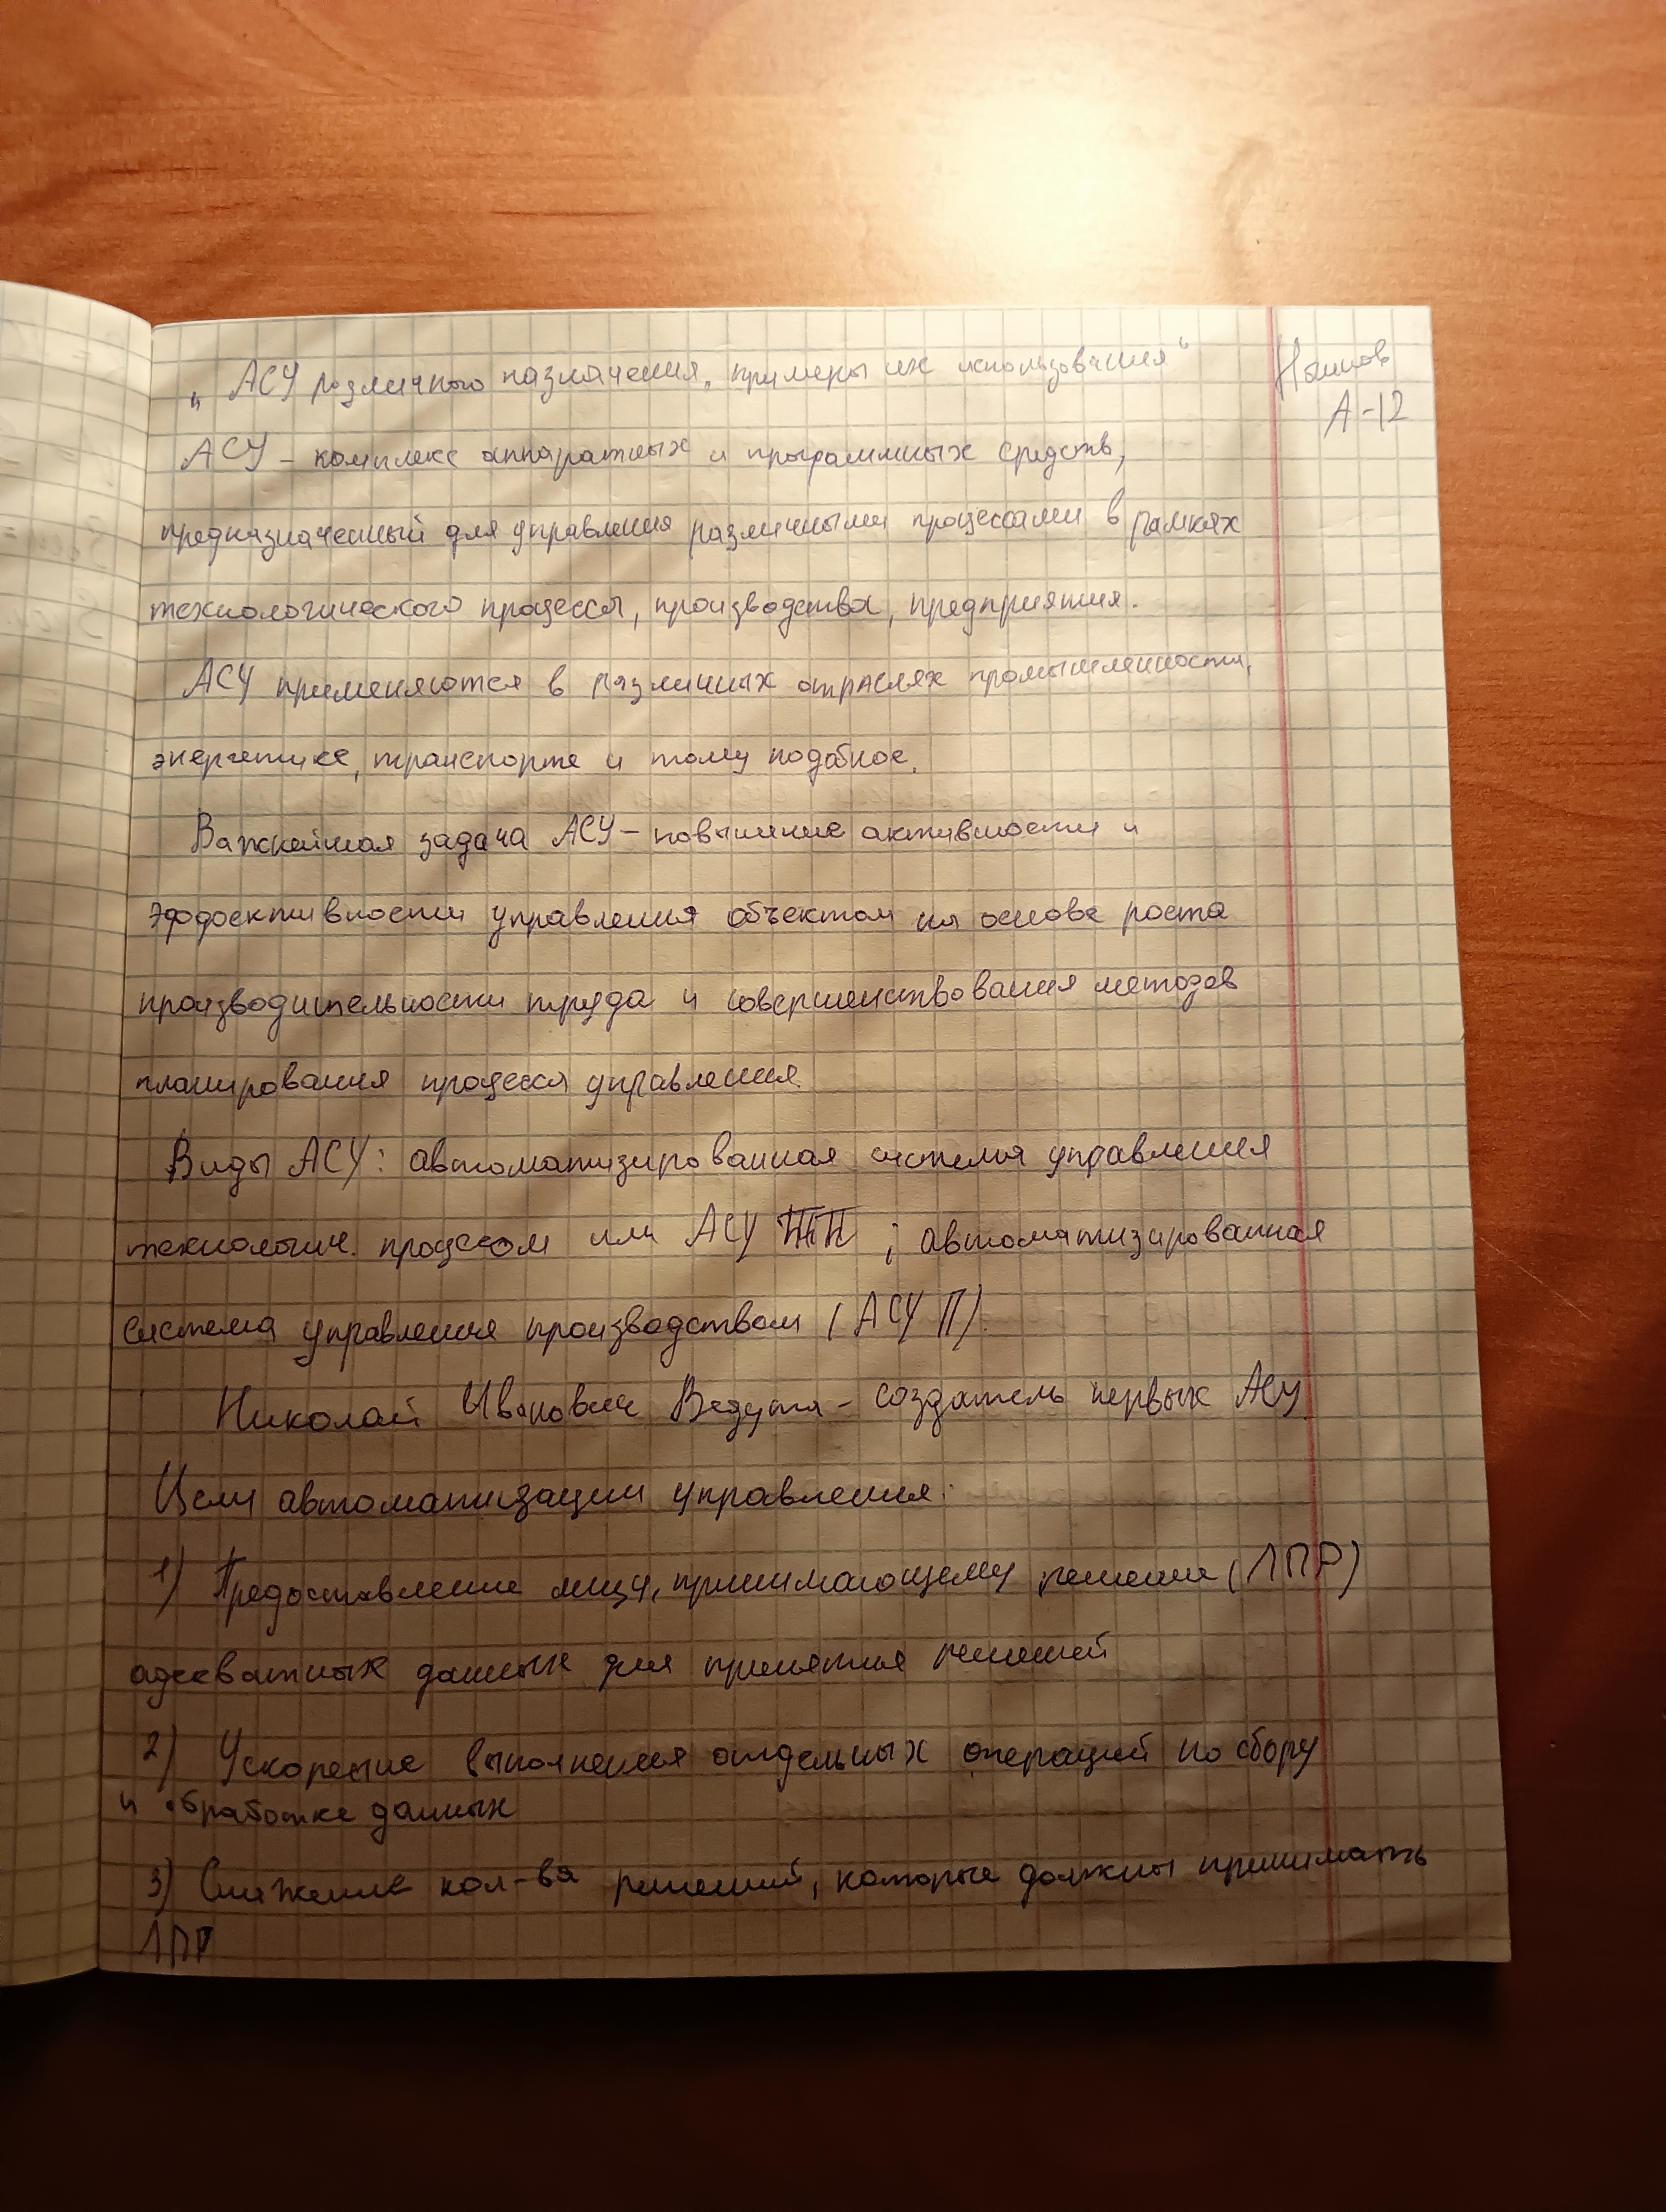 „АСУ различного назначения, примеры их использования"
А-12
АСУ – комплекс аппаратных и программных средств,
предназначенный для управления различными процессами в рамках
технологического процесса, производства, предприятия.
АСУ применяются в различных отраслях промышленности,
энергетике, транспорте и тому подобное.
Важнейшая задача АСУ – повышение активности и
эффективности управления объектом на основе роста
производительности труда и совершенствования методов
планирования процесса управления.
Виды АСУ: автоматизированная система управления
технологич. процессом или АСУ ТП; автоматизированная
система управления производством (АСУ П).
Николай Иванович Ведута – создатель первых АСУ.
Цели автоматизации управления:
1) Предоставление лицу, принимающему решение (ЛПР)
адекватных данных для принятия решений
2) Ускорение выполнения отдельных операций по сбору
и обработке данных
3) Снижение кол-ва решений, которые должны принимать
ЛПР